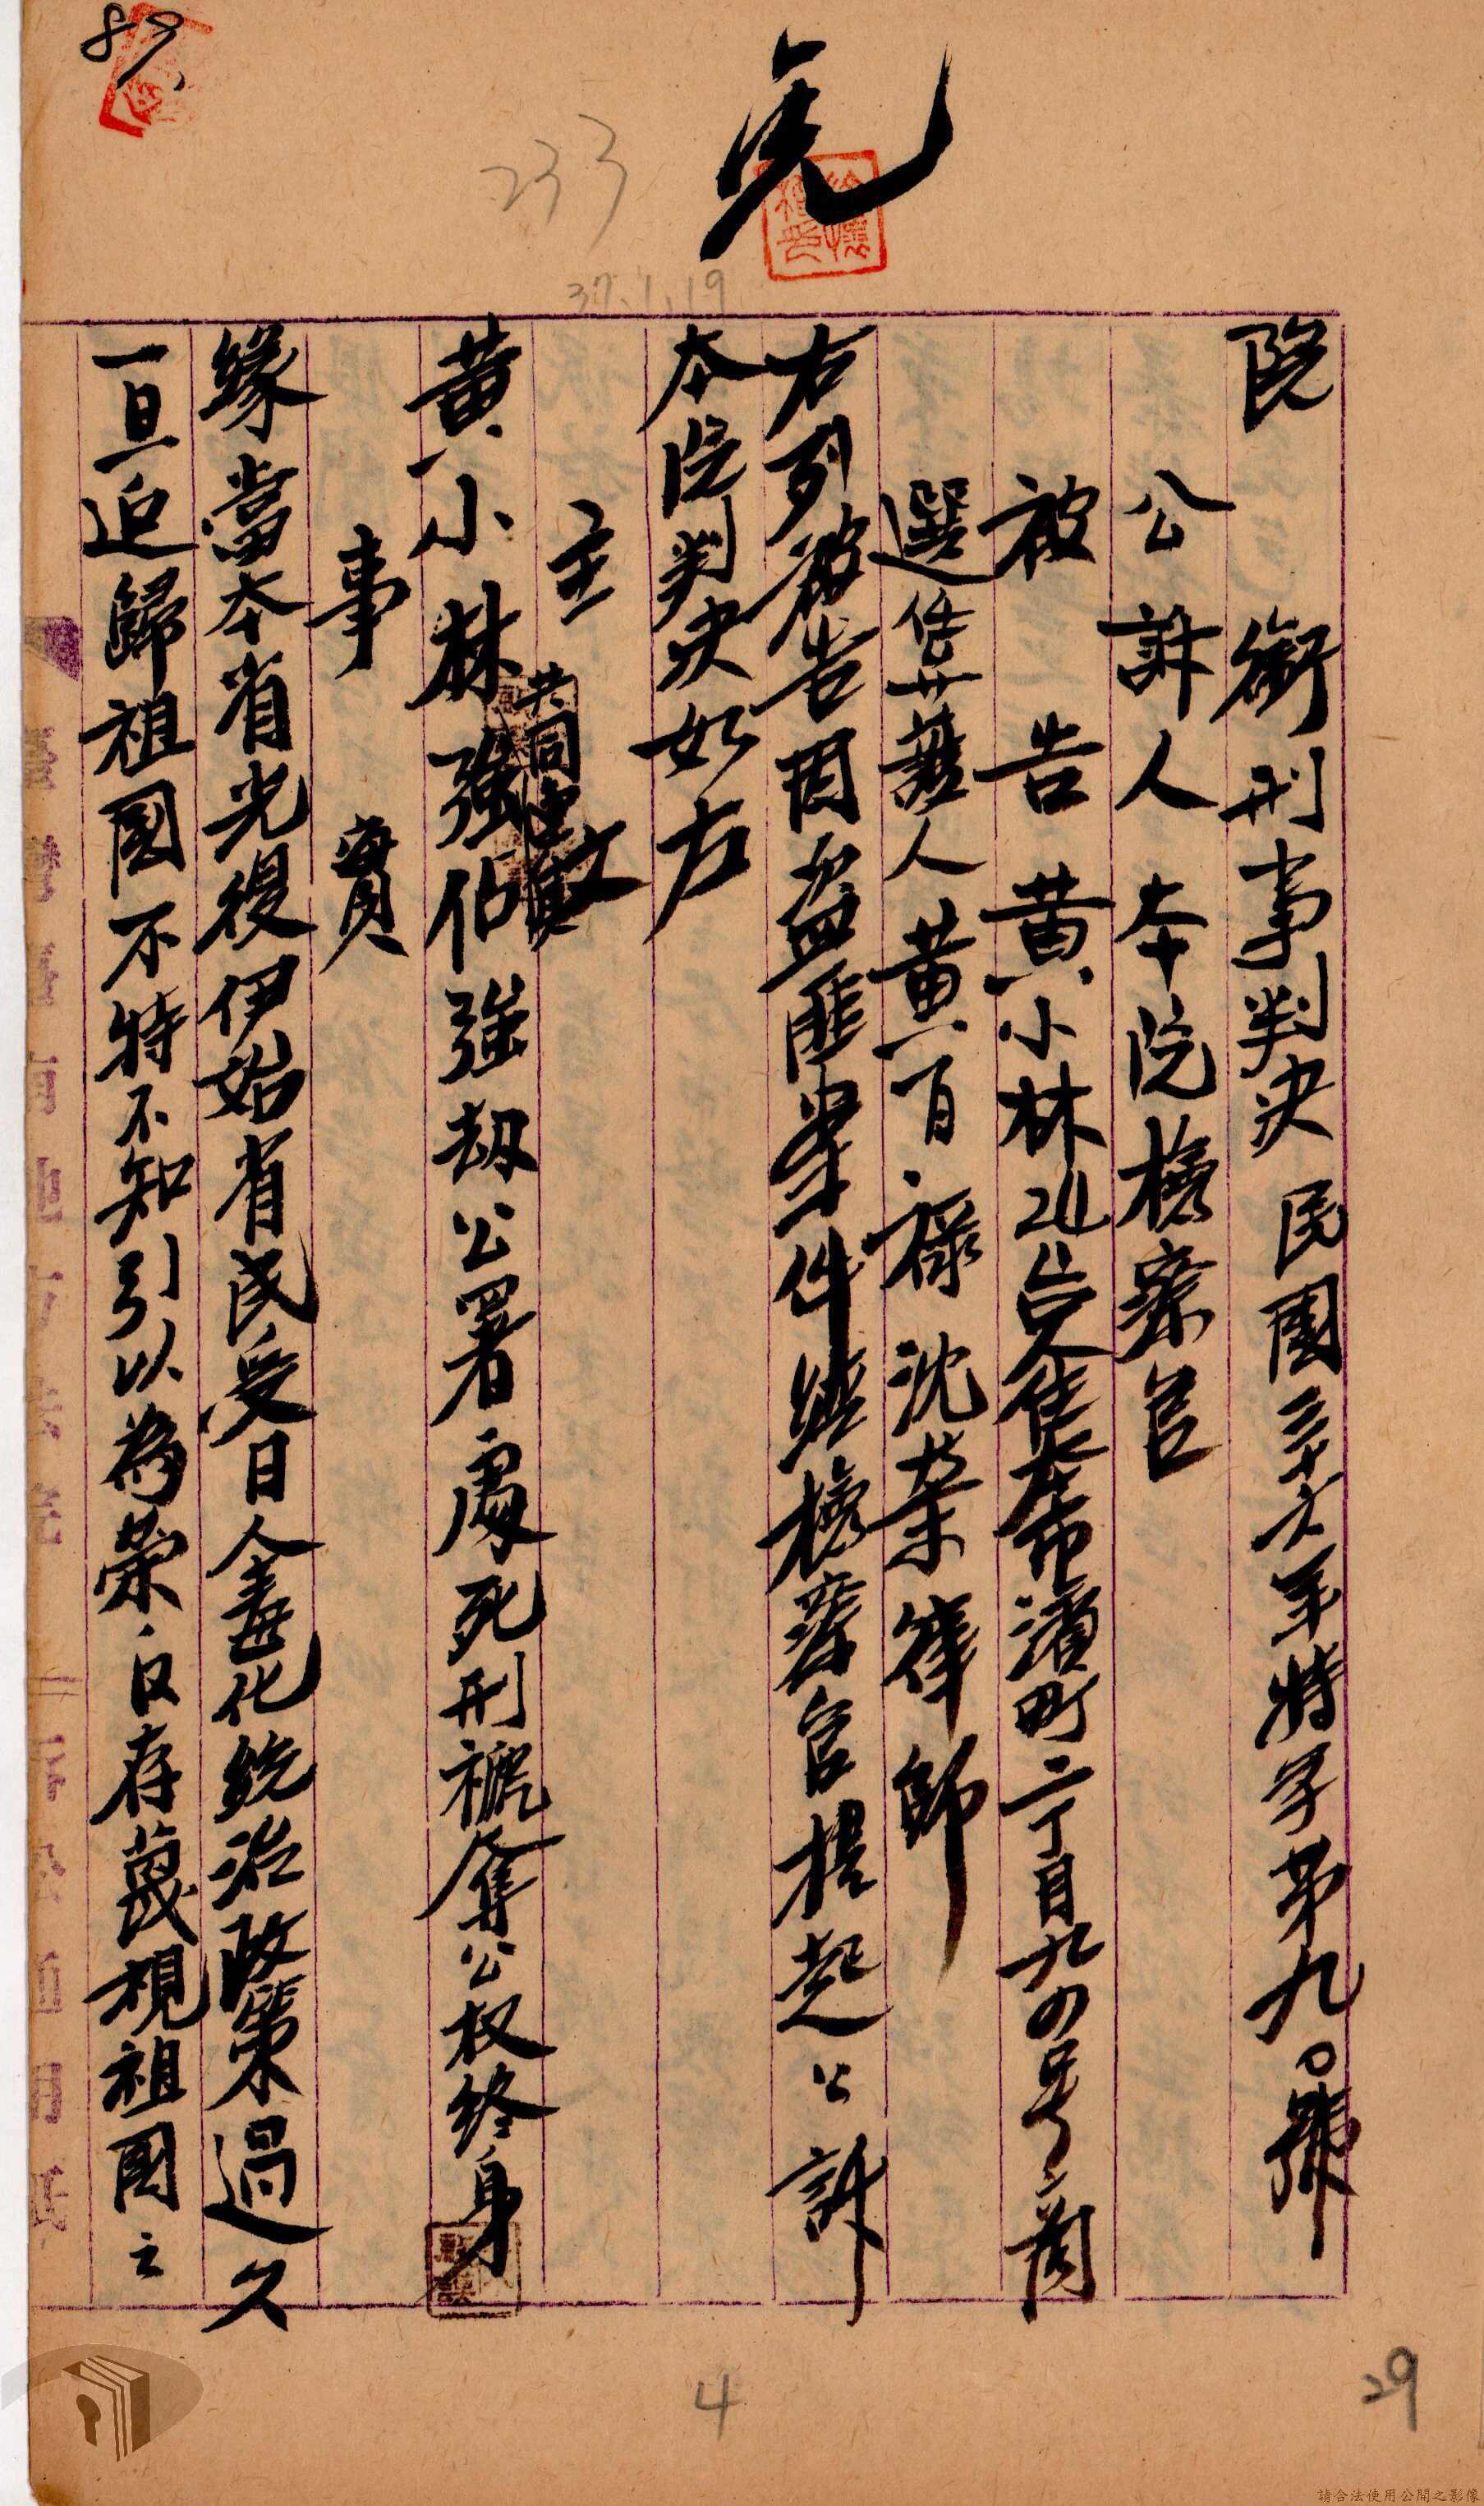 完
233
37.1.19
院銜刑事判決 民國三十六年特字第九〇號
公訴人 本院檢察官
被告 黃小林 台 住 市濱町二丁目九四号 商
選任辯護人 黃百祿 沈榮律師
右列被告因盜匪案件經檢察官提起公訴
本院判決如左
主文
共同
黃小林強佔強劫公署處死刑褫奪公权終身
事實
緣當本省光復伊始省民受日人毒化統治政策過久
一旦迫歸祖國不特不知引以為榮反存蔑視祖國之
4
29
請合法使用公開之影像